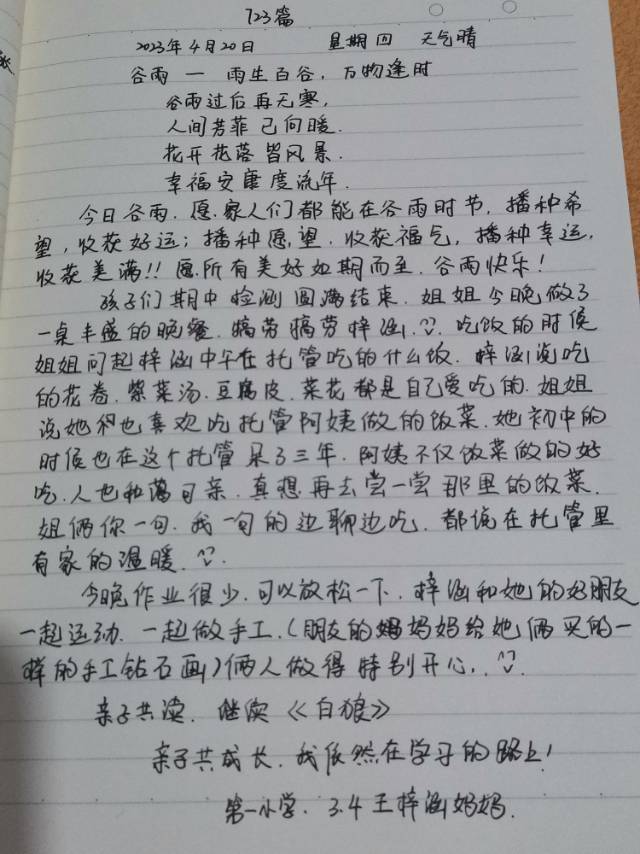 723篇
2023年4月20日 星期四 天气晴
谷雨 — 雨生百谷,万物逢时
谷雨过后再无寒,
人间芳菲已向暖.
花开花落皆风景.
幸福安康度流年.
今日谷雨.愿.家人们都能在谷雨时节,播种希
望,收获好运;播种愿望.收获福气,播种幸运,
收获美满!!愿.所有美好如期而至.谷雨快乐!
孩子们期中检测圆满结束.姐姐今晚做了
一桌丰盛的晚餐.犒劳犒劳梓涵.吃饭的时候
姐姐问起梓涵中午在托管吃的什么饭.梓涵说吃
的花卷.紫菜汤.豆腐皮.菜花都是自己爱吃的.姐姐
说她也喜欢吃托管阿姨做的饭菜.她初中的
时候也在这个托管呆了三年.阿姨不仅饭菜做的好
吃.人也和蔼可亲.真想再去尝一尝那里的饭菜.
姐俩你一句.我一句的边聊边吃.都说在托管里
有家的温暖.
今晚作业很少.可以放松一下.梓涵和她的好朋友
一起运动.一起做手工.(朋友的妈妈给她俩买的一
样的手工钻石画)俩人做得特别开心..
亲子共读.继续《白狼》
亲子共成长.我依然在学习的路上!
第一小学.3.4王梓涵妈妈.